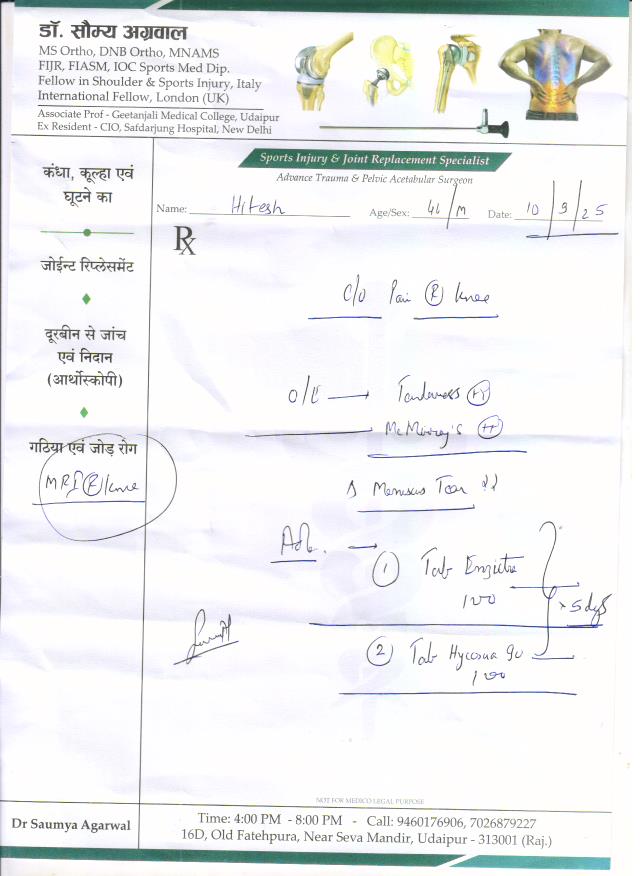 डॉ. सौम्य अग्रवाल
MS Ortho, DNB Ortho, MNAMS
FIJR, FIASM, IOC Sports Med Dip.
Fellow in Shoulder & Sports Injury, Italy
International Fellow, London (UK)
Associate Prof - Geetanjali Medical College, Udaipur
Ex Resident - CIO, Safdarjung Hospital, New Delhi
Sports Injury & Joint Replacement Specialist
Advance Trauma & Pelvic Acetabular Surgeon
Name: Hitesh Age/Sex: /M Date: 10/9/25
Rx
कंधा, कूल्हा एवं
घूटने का
जोईन्ट रिप्लेसमेंट
दूरबीन से जांच
एवं निदान
(आर्थोस्कोपी)
गठिया एवं जोड़ रोग
MRI (R) knee
C/O Pain (R) knee
O/E → Tenderness
McMurray's
Meniscus Tear ??
Adv. →
1 Tab
100
x 5 days
2 Tab
NOT FOR MEDICO LEGAL PURPOSE
Dr Saumya Agarwal
Time: 4:00 PM - 8:00 PM - Call: 9460176906, 7026879227
16D, Old Fatehpura, Near Seva Mandir, Udaipur - 313001 (Raj.)